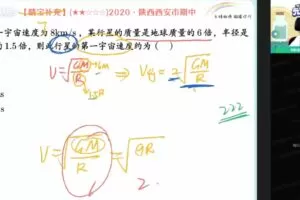 【精字补充】(★★☆☆☆)2020·陕西西安市期中
宇宙速度为 8km/s，某行星的质量是地球质量的 6 倍，半径是
的 1.5 倍，则此行星的第一宇宙速度约为（ ）
V=√GM/R ⇒ V=2√GM/R
6M
1.5R
222
V=√GM/R=√gR
2